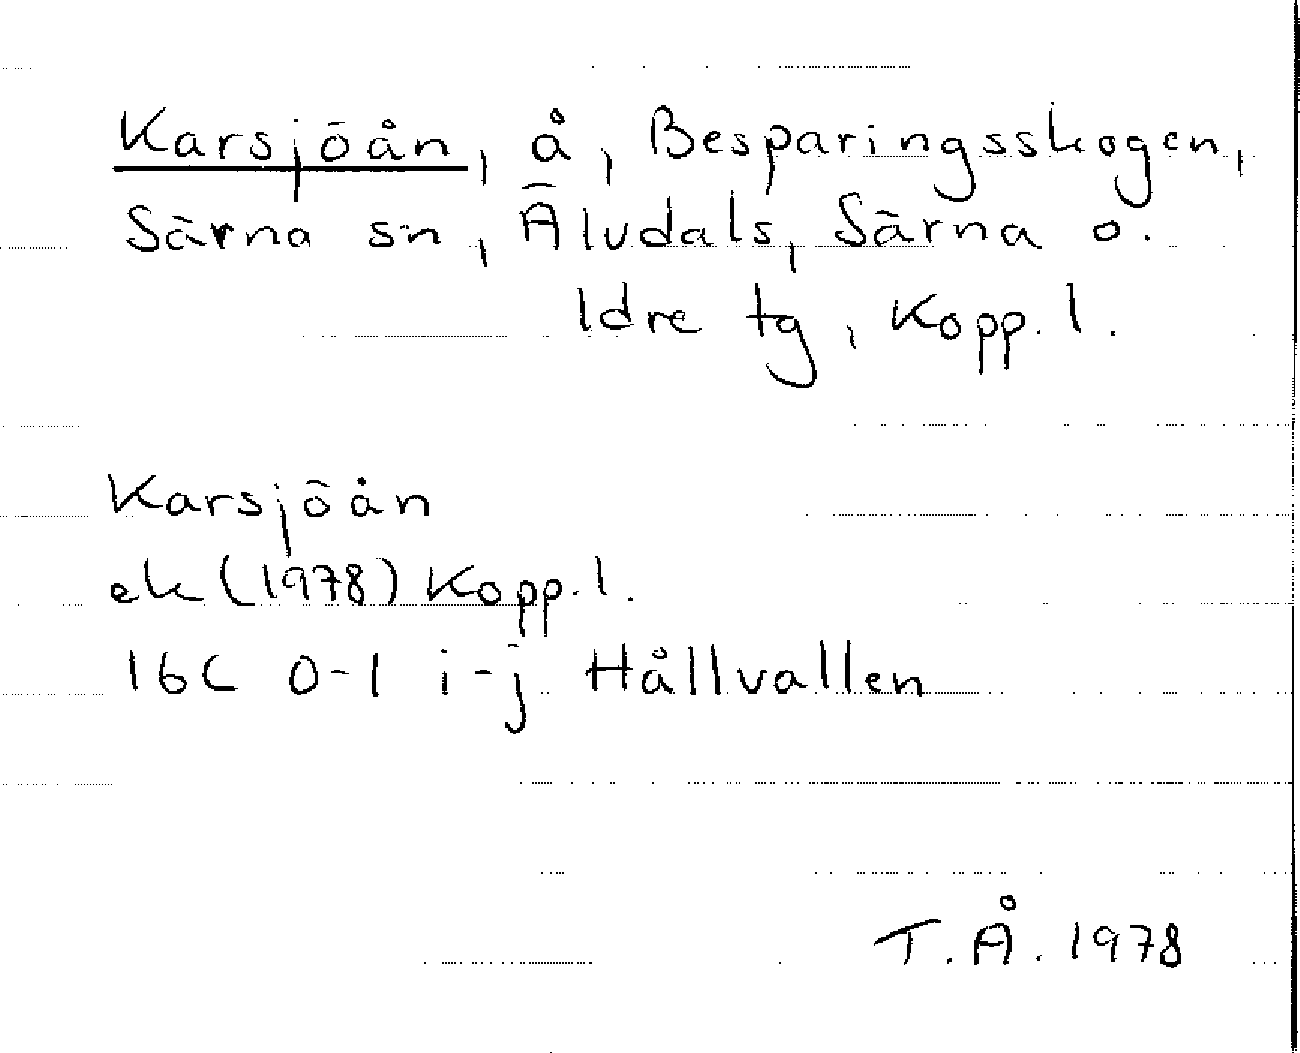 Karsjöån, å, Besparingsskogen,
Särna sn, Älvdals, Särna o.
Idre tg, Kopp. l.
Karsjöån
ek (1978) Kopp. l.
16C 0-1 i-j Hållvallen
T. Å. 1978